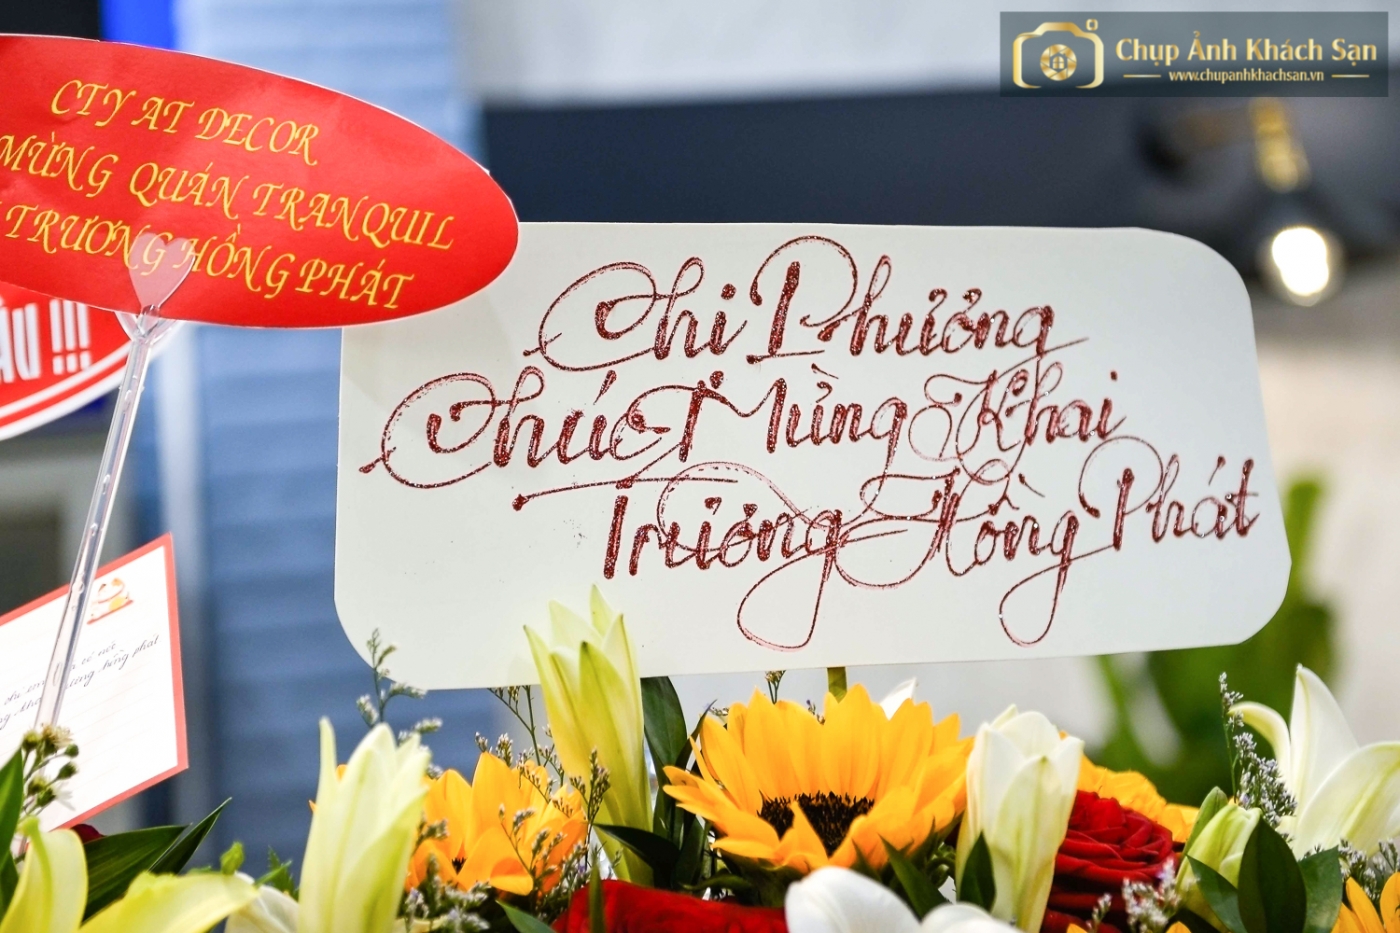 Chụp Ảnh Khách Sạn
www.chupanhkhachsan.vn
CTY AT DECOR
MỪNG QUÁN TRANQUIL
TRƯƠNG HỒNG PHÁT
ẦU !!!
Chi Phưởng
Chúc Mừng Khai
Trương Hồng Phát
hồng phát